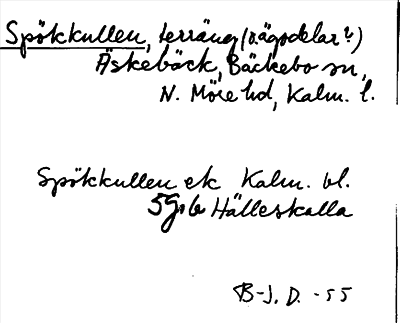 Spökkullen, terräng (o. ägodelar?)
Äskebäck, Bäckebo sn,
N. Möre hd, Kalm. l.
Spökkullen ek Kalm. bl.
5G Hälleskalla
B-J. D. -55